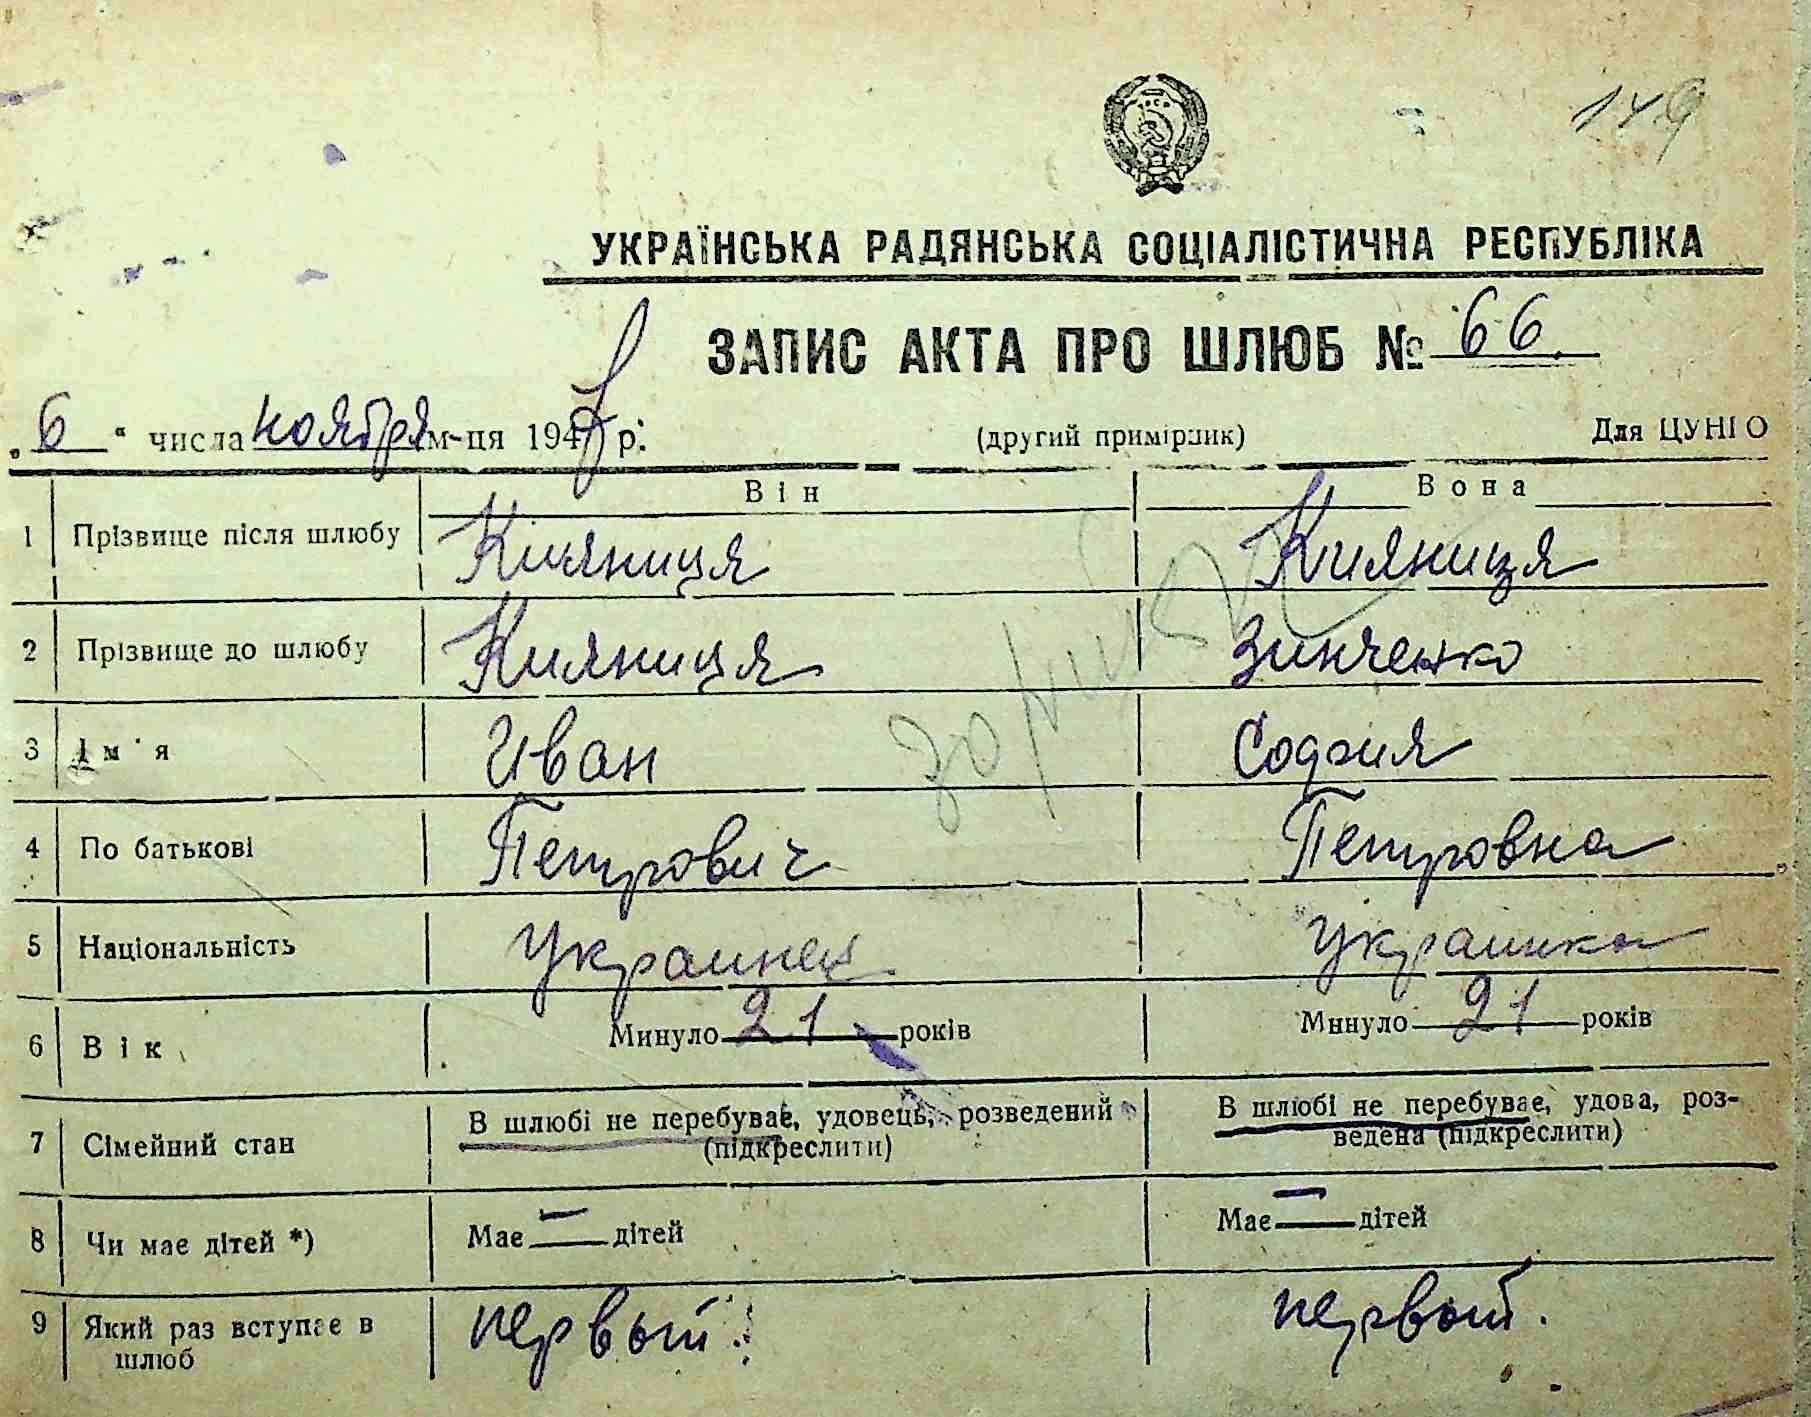 149
УКРАЇНСЬКА РАДЯНСЬКА СОЦІАЛІСТИЧНА РЕСПУБЛІКА
ЗАПИС АКТА ПРО ШЛЮБ № 66.
„6“ числа ноября м-ця 194 р.
(другий примірник)
Для ЦУНГО
Він Вона
1 Прізвище після шлюбу Кияниця Кияниця
2 Прізвище до шлюбу Кияниця Зинченко
3 Ім'я Иван София
4 По батькові Петрович Петровна
5 Національність Украинец Украинка
6 Вік Минуло 21 років Минуло 21 років
7 Сімейний стан В шлюбі не перебуває, удовець, розведений (підкреслити) В шлюбі не перебуває, удова, роз-
ведена (підкреслити)
8 Чи має дітей *) Має — дітей Має — дітей
9 Який раз вступає в шлюб первый. первый.